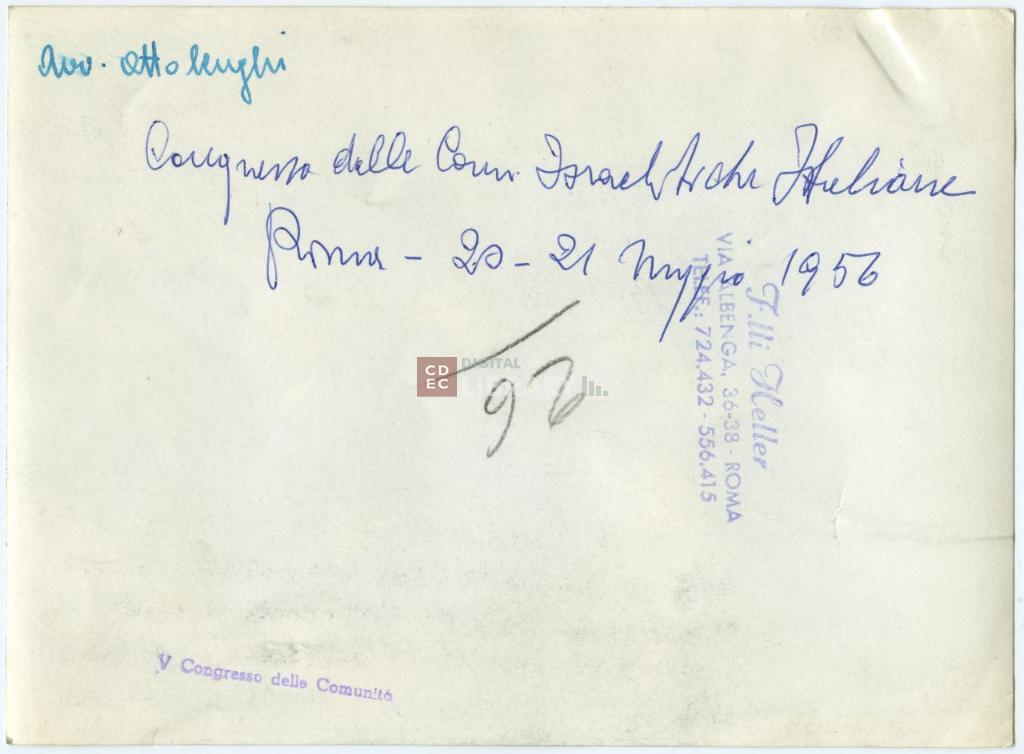 Avv. Ottolenghi
Congresso delle Com. Israelitiche Italiane
Roma - 20-21 Maggio 1956
F.lli Heller
VIA ALBENGA, 36-38 - ROMA
TELEF.: 724.432 - 556.415
CD
EC
DIGITAL
96
V Congresso delle Comunità